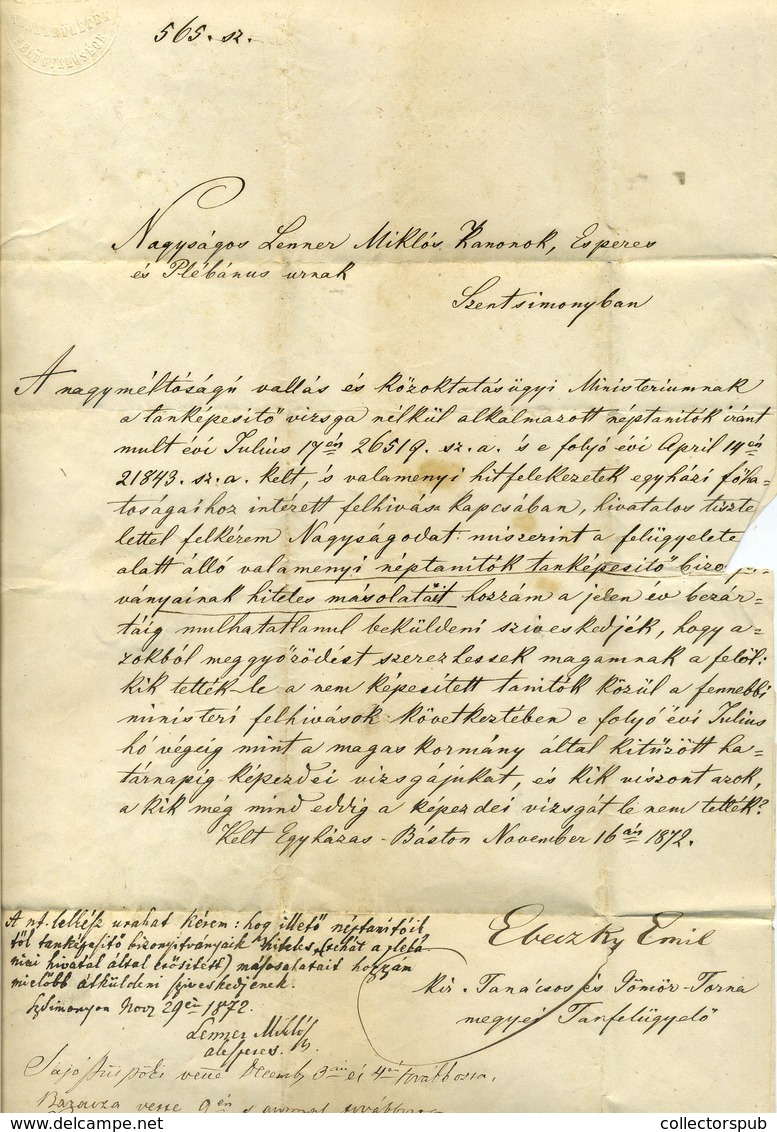 565. sz.
Nagyságos Lenner Miklós Kanonok, Esperes
és Plébánus urnak
Szentsimonyban
A nagyméltóságú vallás és közoktatásügyi Ministeriumnak
a tanképesitő vizsga nélkül alkalmazott néptanitók iránt
mult évi Julius 17én 26519. sz. a. és e folyó évi April 14én
21843. sz. a. kelt, s valamenyi hitfelekezetek egyházi főha-
toságaihoz intézett felhivása kapcsában, hivatalos tiszte
lettel felkérem Nagyságodat: miszerint a felügyelete
alatt álló valamenyi néptanitók tanképesitő bizo
ványainak hiteles másolatait hozzám a jelen év bezár-
táig mulhatatlanul beküldeni sziveskedjék, hogy a-
zokból meggyőződést szerezhessek magamnak a felől:
kik tették-le a nem képesitett tanitók közül a fennebbi
ministeri felhivások következtében e folyó évi Julius
hó végeig mint a magas kormány által kitűzött ha-
tárnapig képezdei vizsgájukat, és kik viszont azok,
a kik még mind eddig a képezdei vizsgát le nem tették?
Kelt Egyházas-Báston November 16án 1872.
Ebeczky Emil
kir. Tanácsos és Gömör-Torna
megyei Tanfelügyelő
A nt. lelkész urakat kérem: hog illető néptanitóik
től tanképesitő bizonyitványaik hiteles (tehát a plebá
niai hivatal által erősitett) másolatait hozzám
mielőbb átküldeni sziveskedjenek.
SzSimonyon Nov 29én 1872.
Lenner Miklós
alesperes.
Sajó Püspöki vette Decemb 3án és 4én továbbozza.
vette 9én s azonnal
collectorspub